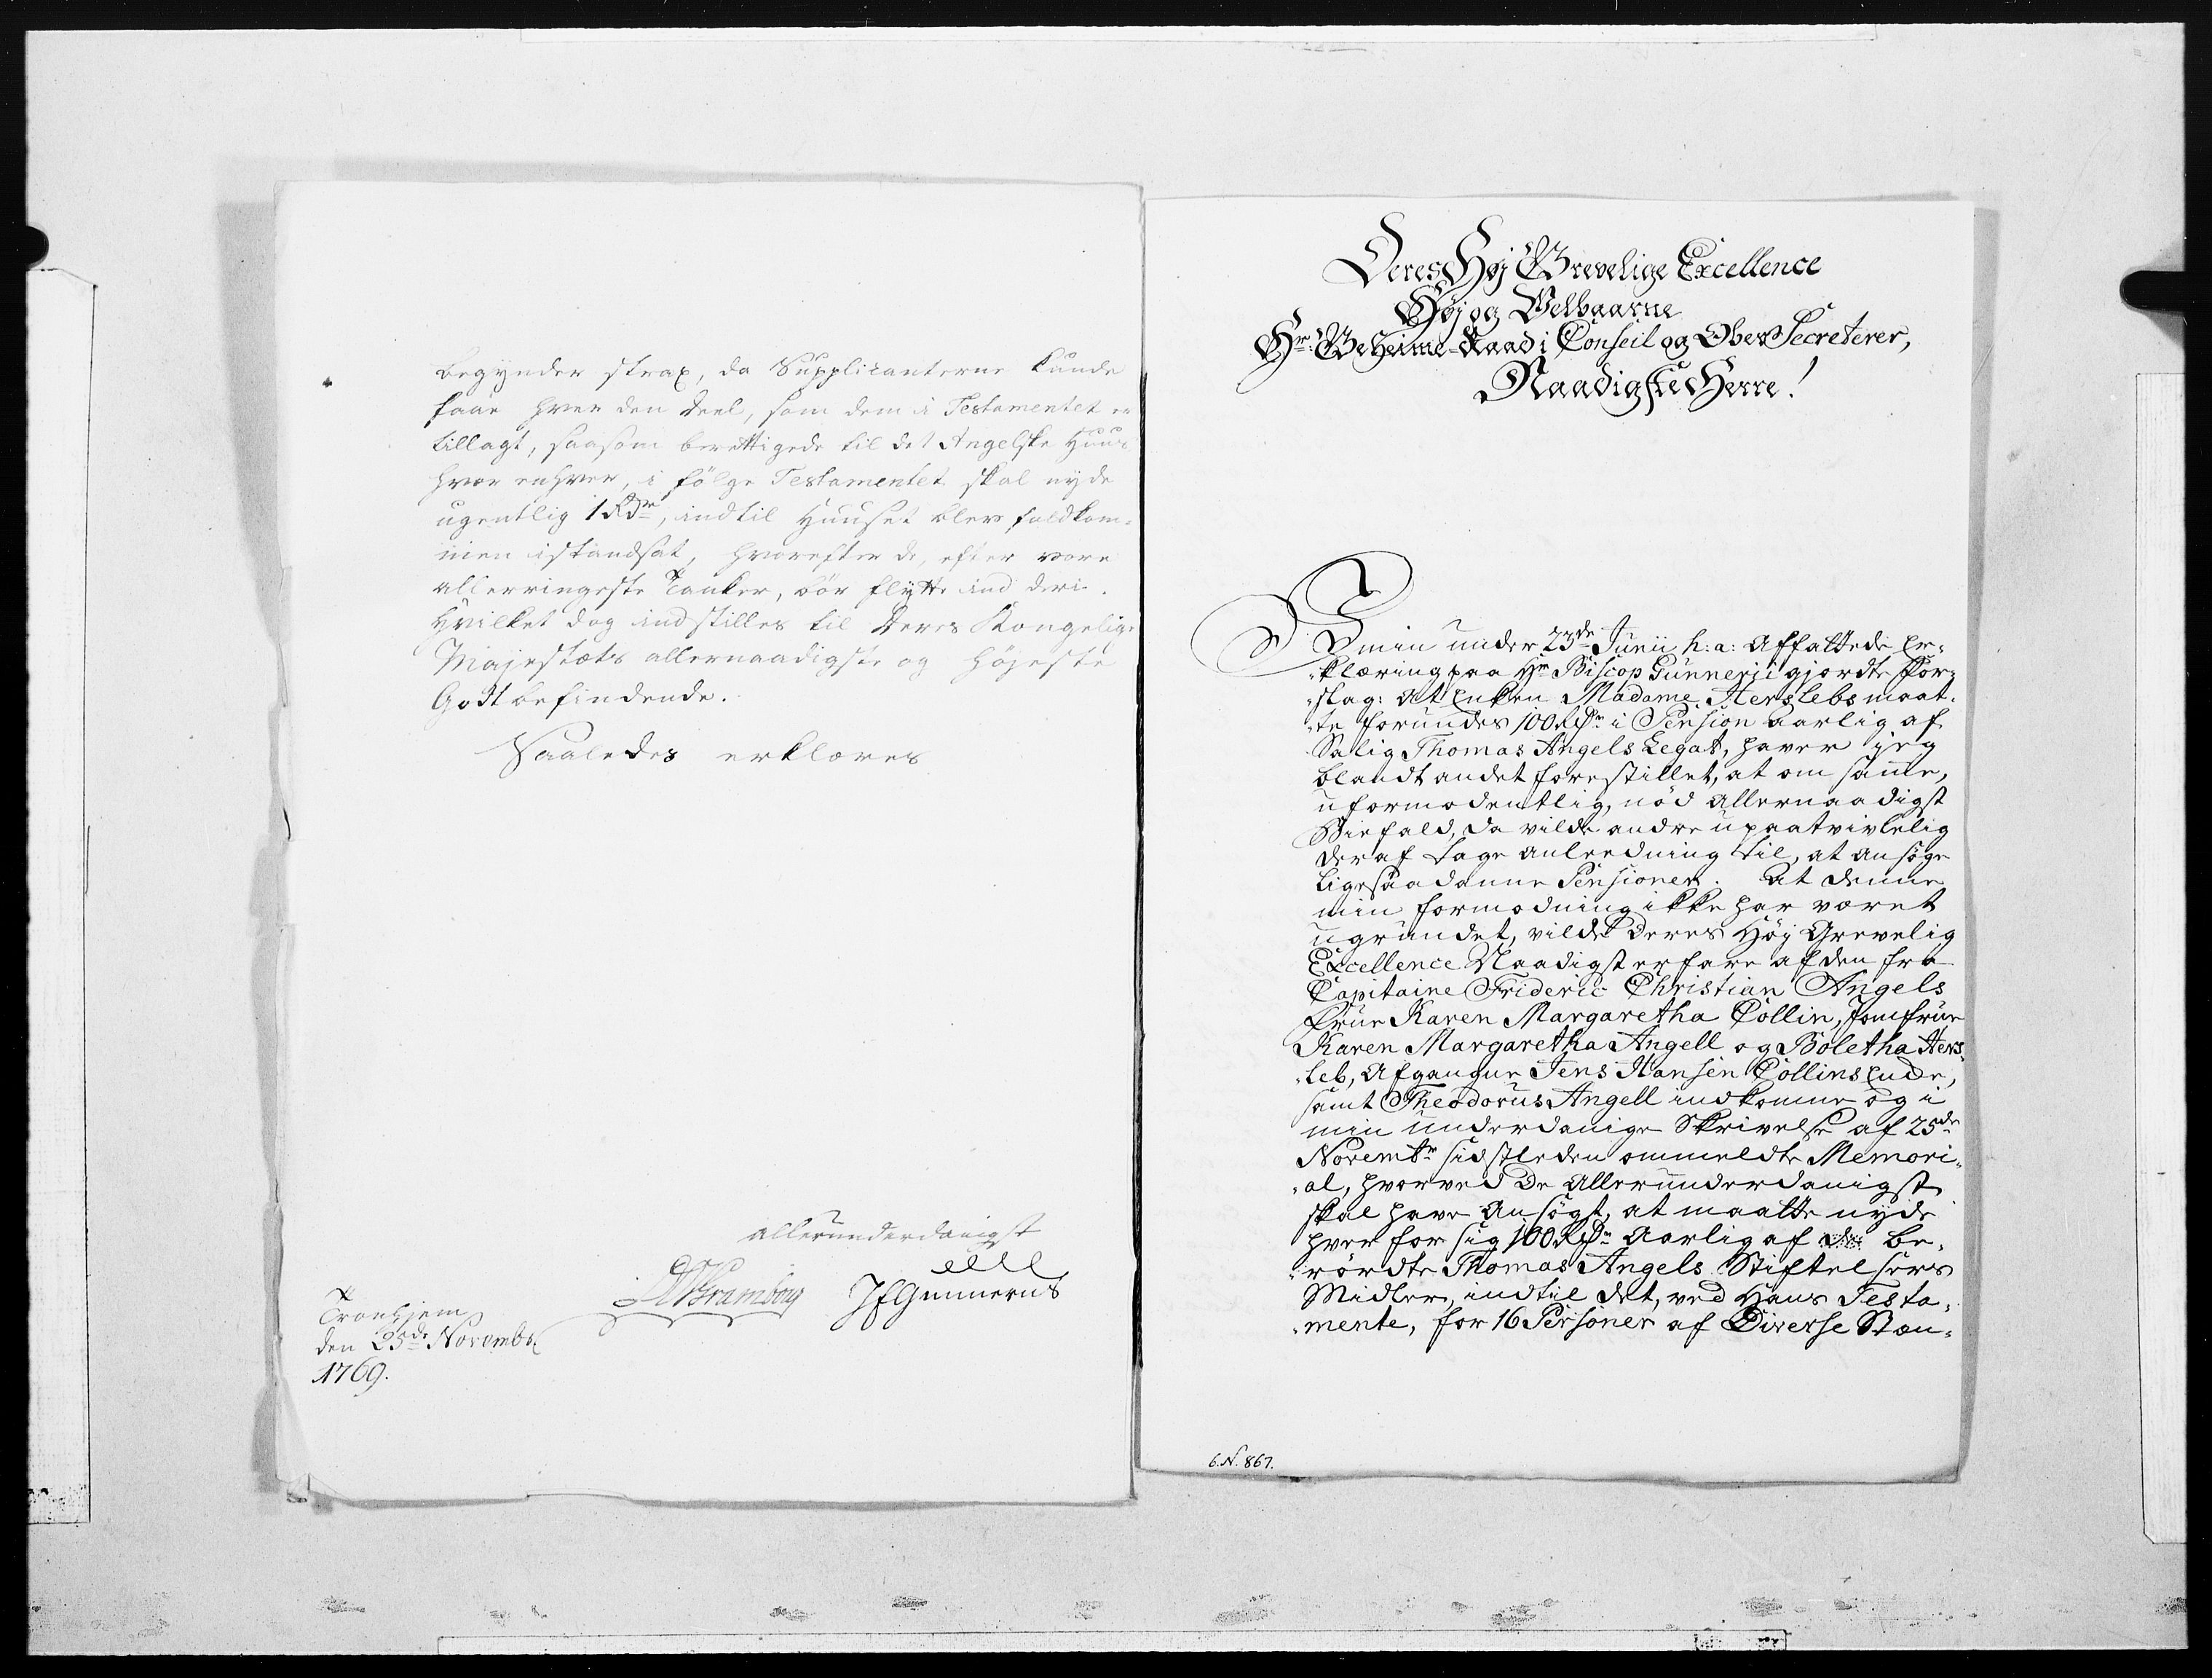 begynder strax, da Supplicanterne kunde
faae hver den Deel, som dem i Testamentet er
tillagt, saasom berettigede til det Angelske Huus
hvor enhver, i følge Testamentet skal nyde
ugentlig 1 Rdr, indtil Huuset blev fuldkom-
men istandsat, hvorefter de, efter vore
allerringeste Tanker, bör flytte ind deri.
Hvilket dog indstilles til Deres Kongelige
Majestæts allernaadigste og høyeste
Godtbefindende.
Saaledes erklæres
allerunderdanigst
JFGunnerus
Tronhjem
den 25de Novembr
1769.
Deres Høj Grevelige Excellence
Høj og Velbaarne
Hr: Geheime-Raad i Conseil og Ober Secreterer,
Naadigste Herre!
I min under 23de Junii h: a: Affattede Er-
klæring paa Hr Biscop Gunnerii giordte For-
slag: at Enken Madame Herslebs maat-
te forundes 100 Rdr i Pension aarlig af
Salig Thomas Angels Legat, haver jeg
blandt andet forestillet, at om samme,
uformodentlig, nød Allernaadigst
Biefald, da vilde andre upaatvivlelig
deraf tage anleedning til, at ansøge
ligesaadanne Pensioner. At denne
min formodning ikke har været
ugrundet, vilde Deres Høj Grevelig
Excellence Naadigst erfare af den fra
Capitaine Frideric Christian Angels
Frue Karen Margaretha Collin, Jomfrue
Karen Margaretha Angell og Boletha Hers-
leb, Afgangne Jens Hansen Collins Enke,
samt Theodorus Angell indkomne og i
min underdanige Skrivelse af 25de
Novembr sidstleden ommeldte Memori-
al, hvorved de Allerunderdanigst
skal have Ansøgt, at maatte nyde
hver for sig 100 Rdr Aarlig af be-
rørdte Thomas Angels Stiftelsers
Midler, indtil det, ved Hans Testa-
mente, for 16 Personer af Diverse Stæn-
6. N. 867.